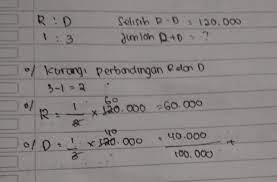 R : D Selisih R-D = 120.000
1 : 3 Jumlah R+D = ?
o/ Kurangi perbandingan R dan D
3-1 = 2
o/ R = 1/2 × 120.000 = 60.000
60
o/ D = 1/3 × 120.000 = 40.000
40
100.000 +